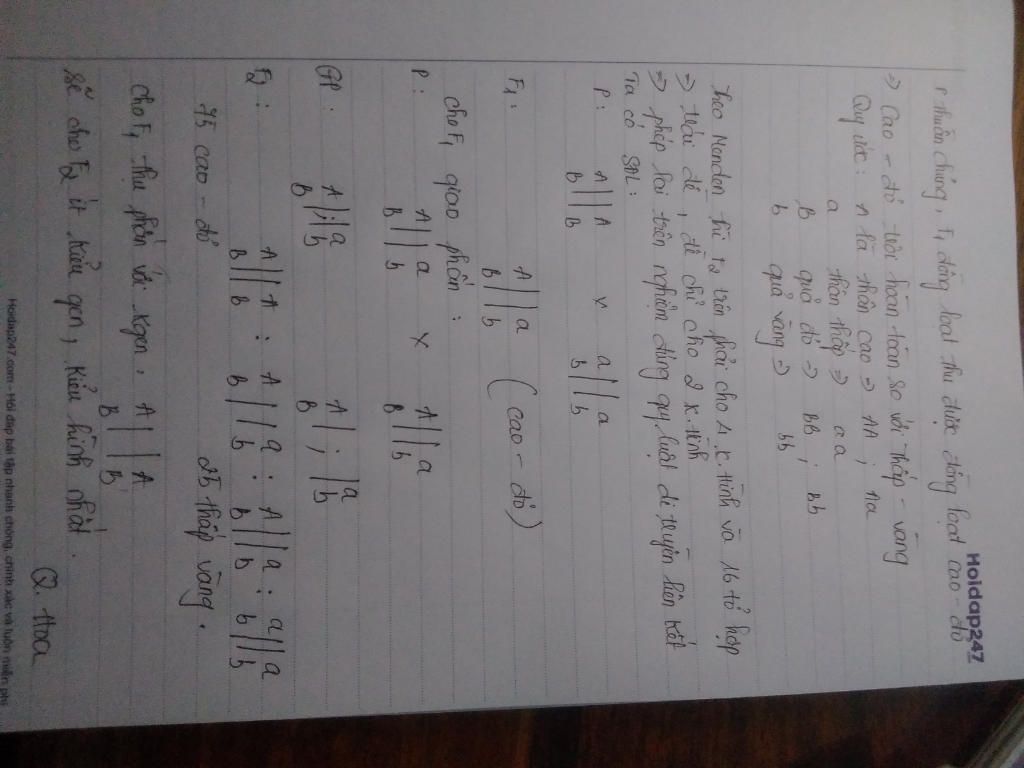 Hoidap247
P thuần chủng, F1 đồng loạt thu được đồng loạt cao - đỏ
=> Cao - đỏ trội hoàn toàn so với thấp - vàng
Quy ước: A là thân cao => AA; Aa
a thân thấp => aa
B quả đỏ => BB; Bb
b quả vàng => bb
Theo Menđen thì F2 trên phải cho 4 k.hình và 16 tổ hợp
=> trái đề, đề chỉ cho 2 k.hình
=> phép lai trên nghiệm đúng quy luật di truyền liên kết
Ta có SĐL:
P: A||A x a||a
B||B b||b
F1: A||a (cao - đỏ)
B||b
cho F1 giao phấn:
P: A||a x A||a
B||b B||b
GP: A|;|a A|;|a
B| |b B| |b
F2: A||A : A||a : A||a : a||a
B||B B||b B||b b||b
75 cao - đỏ 25 thấp vàng.
cho F1 thụ phấn với kgen: A||A
B||B
sẽ cho F2 ít kiểu gen, kiểu hình nhất.
Q. Hoa
Hoidap247.com - Hỏi đáp bài tập nhanh chóng, chính xác và luôn miễn phí